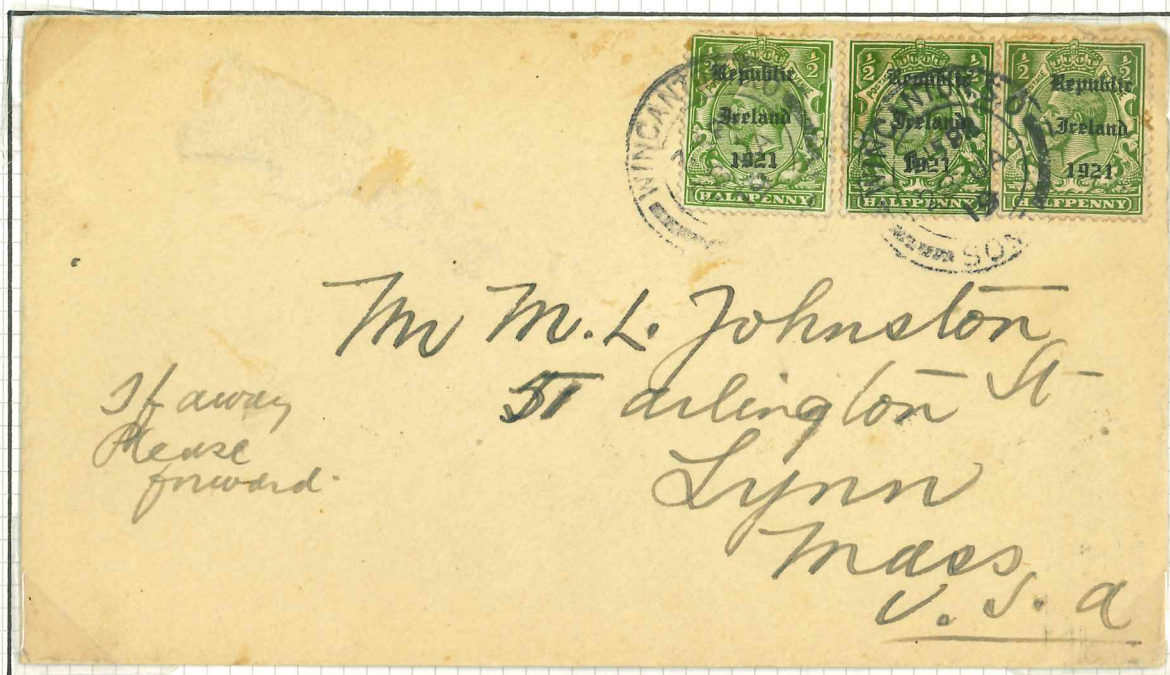 ½ ½
Republic
Ireland
1921
HALFPENNY
½ ½
POSTAGE
Republic
Ireland
1921
HALFPENNY
½ ½
Republic
Ireland
1921
HALFPENNY
WINCANTON S.O
SOM
WINCANTON
Mr M. L. Johnston
51 arlington St
Lynn
Mass
U. S. a
If away
Please
forward.